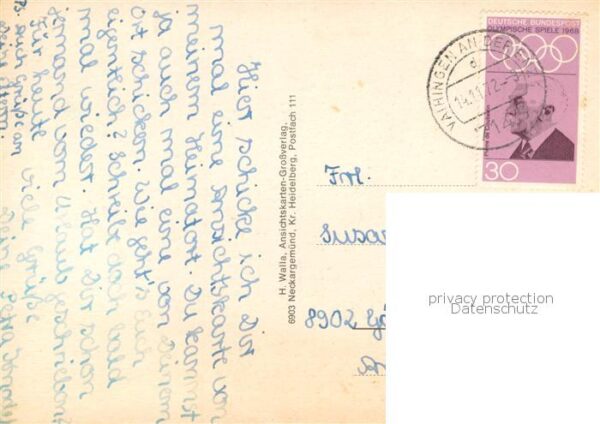 Hier schicke ich Dir
mal eine Ansichtskarte von
meinem Heimatort. Du kannst
ja auch mal eine von Deinem
Ort schicken. Wie geht's Euch
eigentlich? Schreibt doch bald
mal wieder. Hat Dir schon
jemand vom Urlaub geschrieben?
Für heute
viele Grüße
Deine Petra
auch Grüße an
Deine Eltern.
H. Walla, Ansichtskarten-Großverlag,
6903 Neckargemünd, Kr. Heidelberg, Postfach 111
DEUTSCHE BUNDESPOST
OLYMPISCHE SPIELE 1968
30
VAIHINGEN AN DER
14.11.72
Frl.
8902
privacy protection
Datenschutz